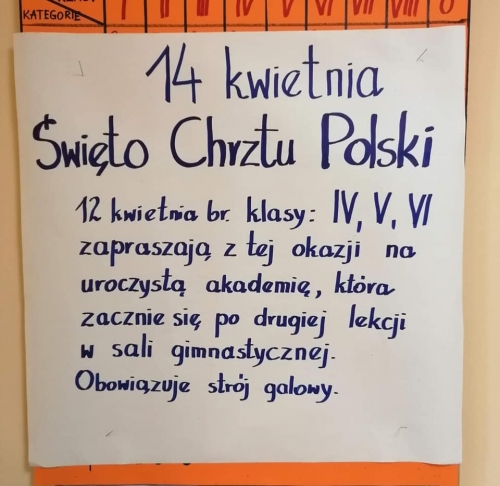 KATEGORIE I II III IV V VI VII VIII 0
14 kwietnia
Święto Chrztu Polski
12 kwietnia br. klasy: IV, V, VI
zapraszają z tej okazji na
uroczystą akademię, która
zacznie się po drugiej lekcji
w sali gimnastycznej.
Obowiązuje strój galowy.